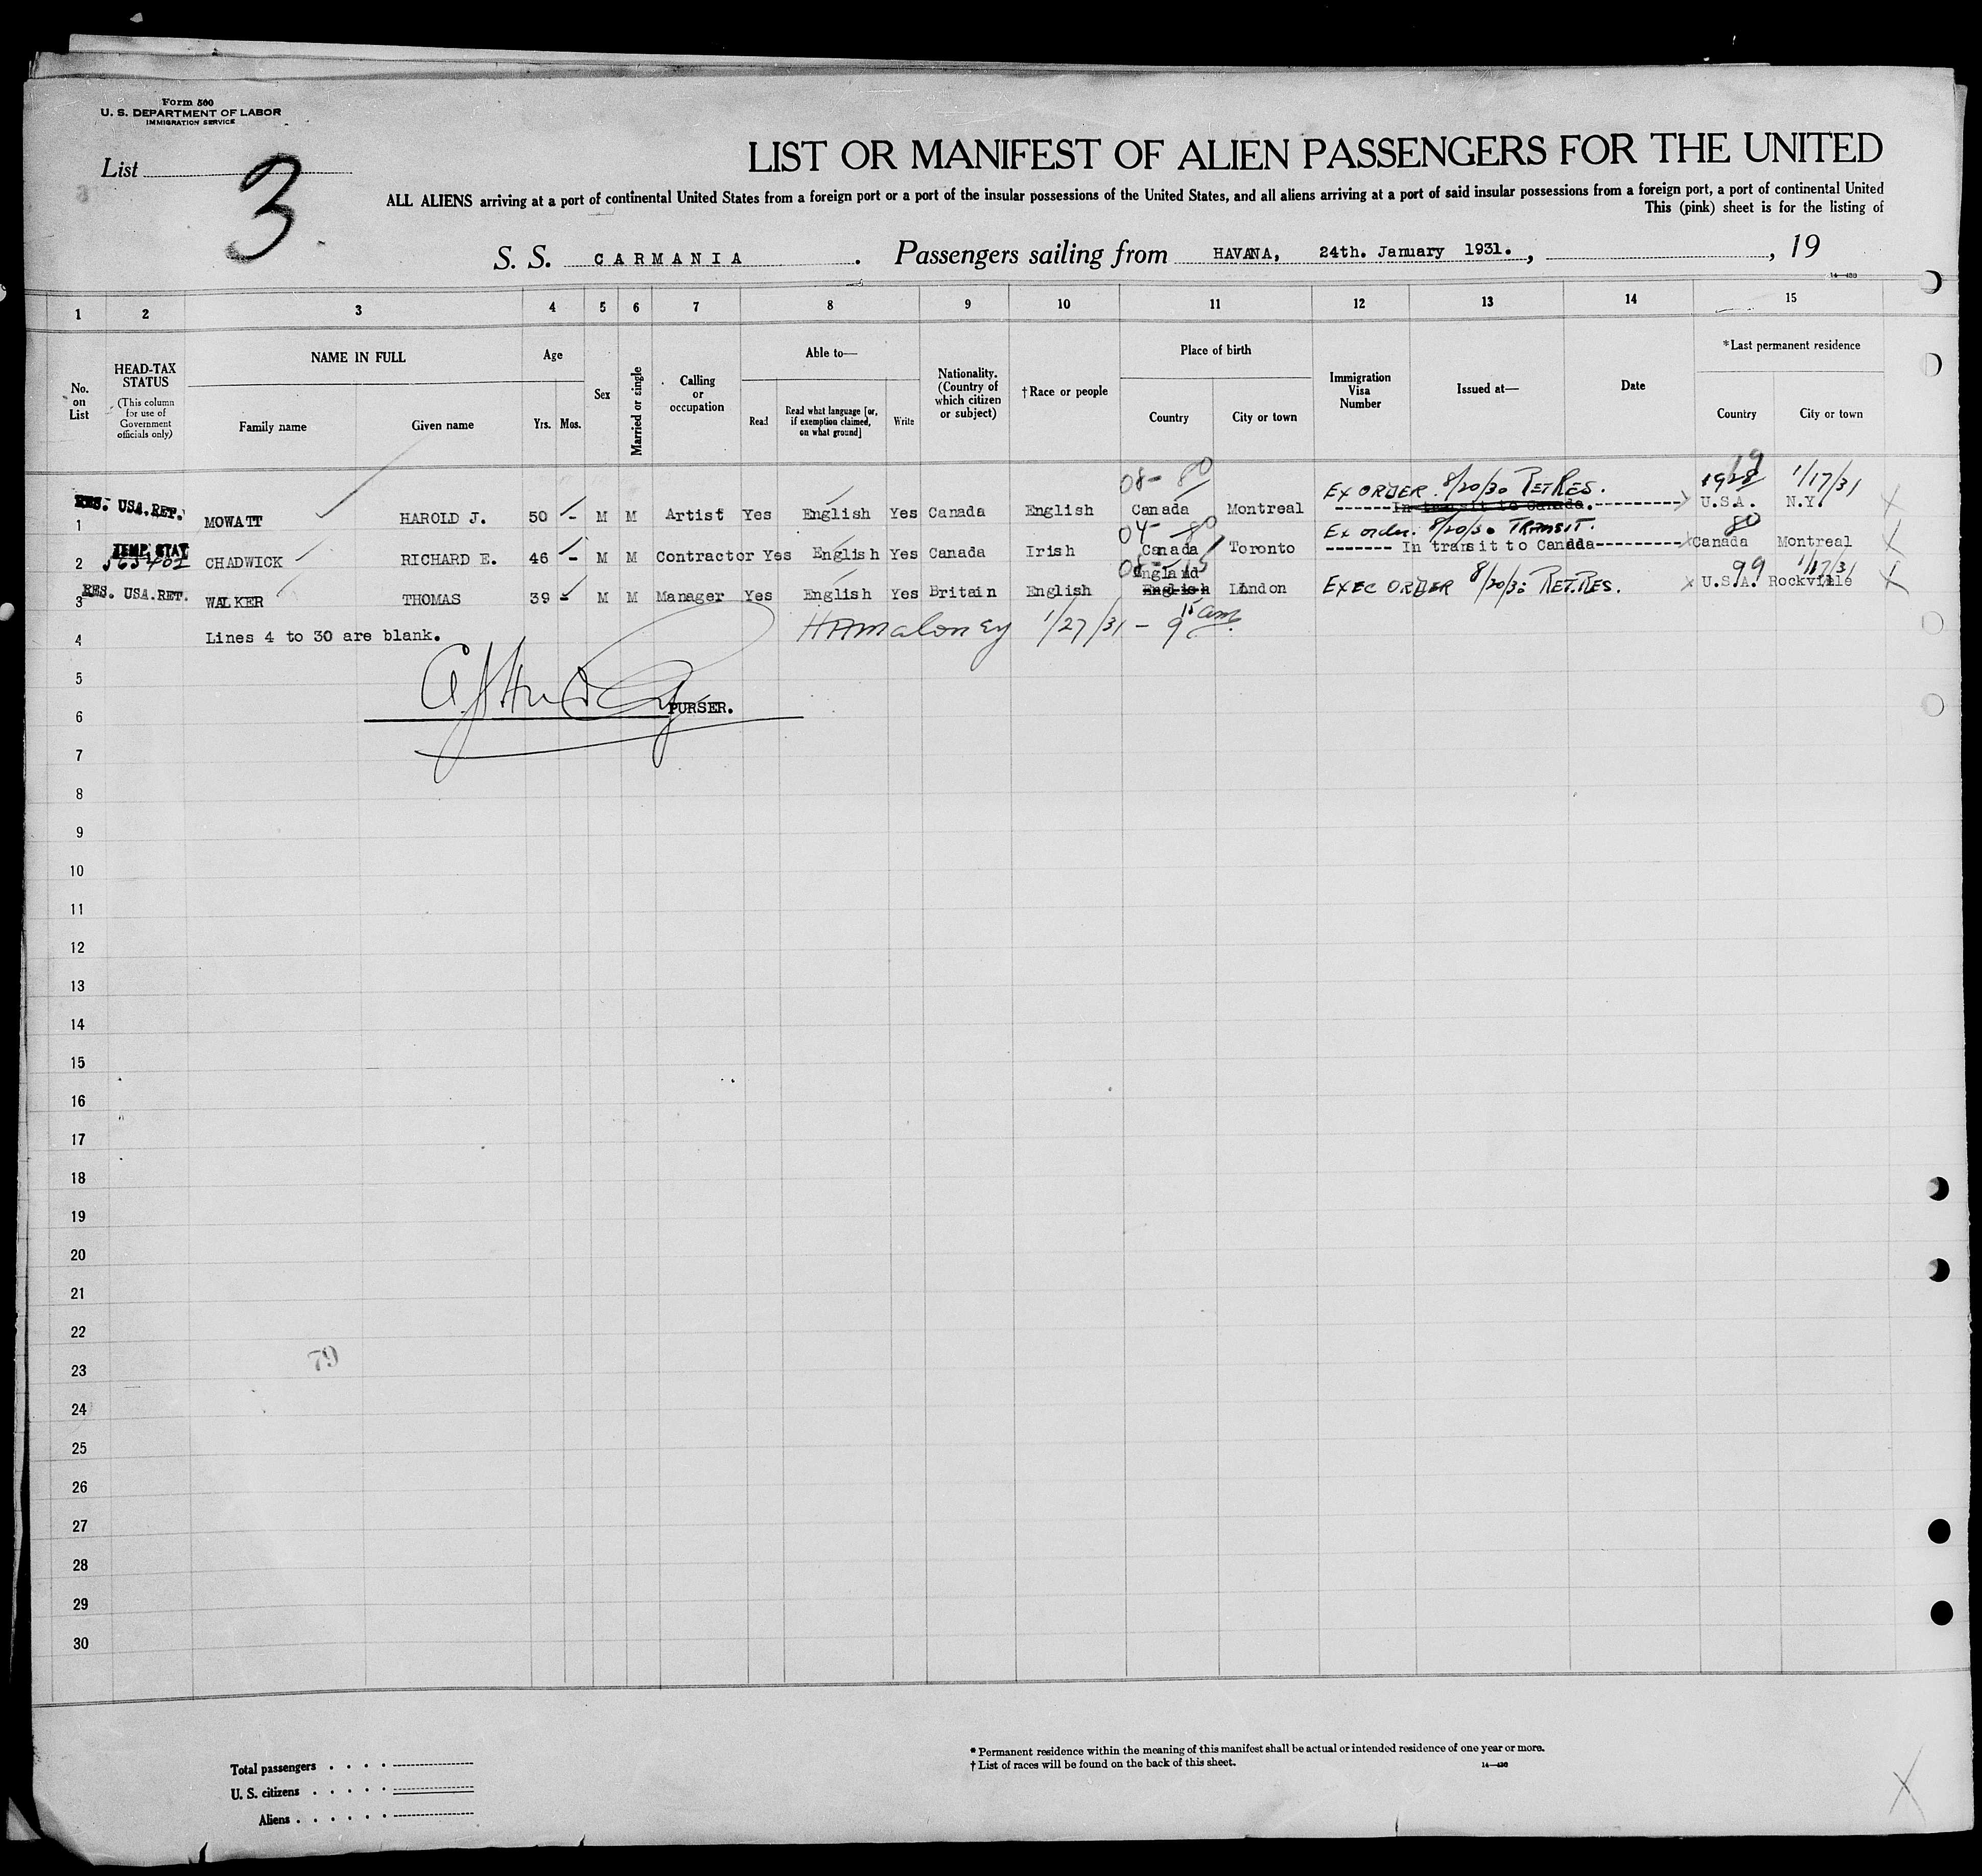 Form 500
U. S. DEPARTMENT OF LABOR
IMMIGRATION SERVICE
List
3
LIST OR MANIFEST OF ALIEN PASSENGERS FOR THE UNITED
ALL ALIENS arriving at a port of continental United States from a foreign port or a port of the insular possessions of the United States, and all aliens arriving at a port of said insular possessions from a foreign port, a port of continental United
This (pink) sheet is for the listing of
S. S. CARMANIA. Passengers sailing from HAVANA, 24th. January 1931., , 19
14—430
1 2 3 4 5 6 7 8 9 10 11 12 13 14 15
No. on List
HEAD-TAX STATUS
(This column for use of Government officials only)
NAME IN FULL
Family name Given name
Age
Yrs. Mos.
Sex
Married or single
Calling or occupation
Able to—
Read Read what language [or, if exemption claimed, on what ground] Write
Nationality. (Country of which citizen or subject)
†Race or people
Place of birth
Country City or town
Immigration Visa Number
Issued at—
Date
*Last permanent residence
Country City or town
08- 80 Ex ORDER 8/20/30 RET RES. 1928 1/17/31
1 RES. USA.RET. MOWATT HAROLD J. 50 - M M Artist Yes English Yes Canada English Canada Montreal ------In transit to Canada.--------- U.S.A. N.Y.
04- 80 Ex order. 8/20/30 TRANSIT. 80
2 TEMP. STAT CHADWICK RICHARD E. 46 - M M Contractor Yes English Yes Canada Irish Canada Toronto ------- In transit to Canada---------- Canada Montreal
08-15 England 99 1/17/31
3 RES. USA.RET. WALKER THOMAS 39 - M M Manager Yes English Yes Britain English English London EXEC ORDER 8/20/30 RET.RES. U.S.A. Rockville
4 Lines 4 to 30 are blank. HAMaloney 1/27/31 - 9 15 am
5
6 PURSER.
7
8
9
10
11
12
13
14
15
16
17
18
19
20
21
22
23
79
24
25
26
27
28
29
30
Total passengers . . . .
U. S. citizens . . . . .
Aliens . . . . . .
* Permanent residence within the meaning of this manifest shall be actual or intended residence of one year or more.
† List of races will be found on the back of this sheet. 14—430